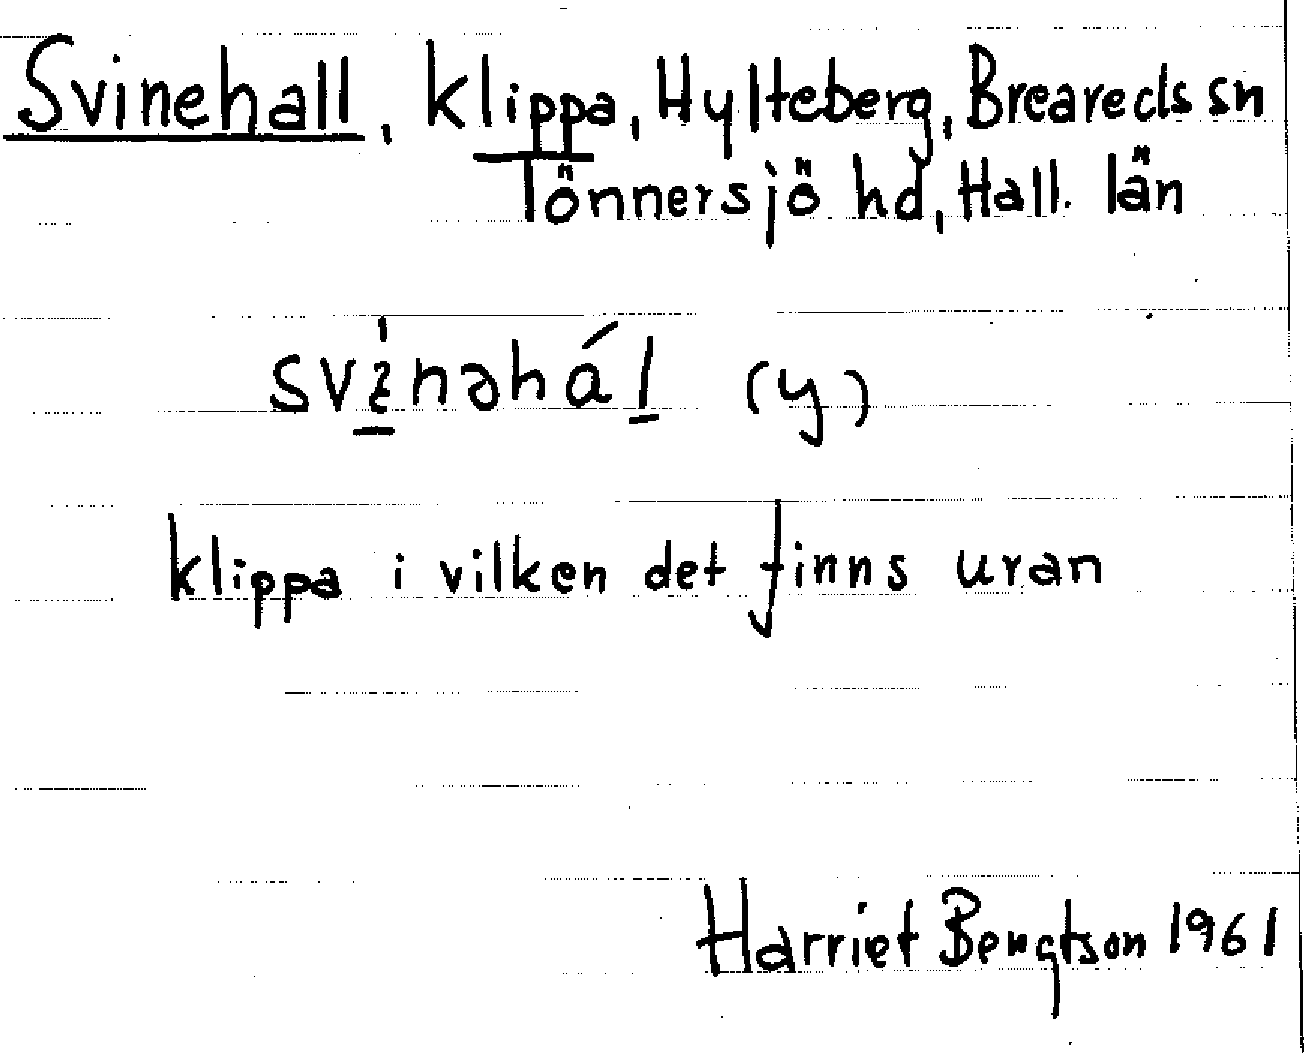 Svinehall, klippa, Hylteberg, Breareds sn
Tönnersjö hd, Hall. län
(y)
klippa i vilken det finns uran
Harriet Bengtson 1961